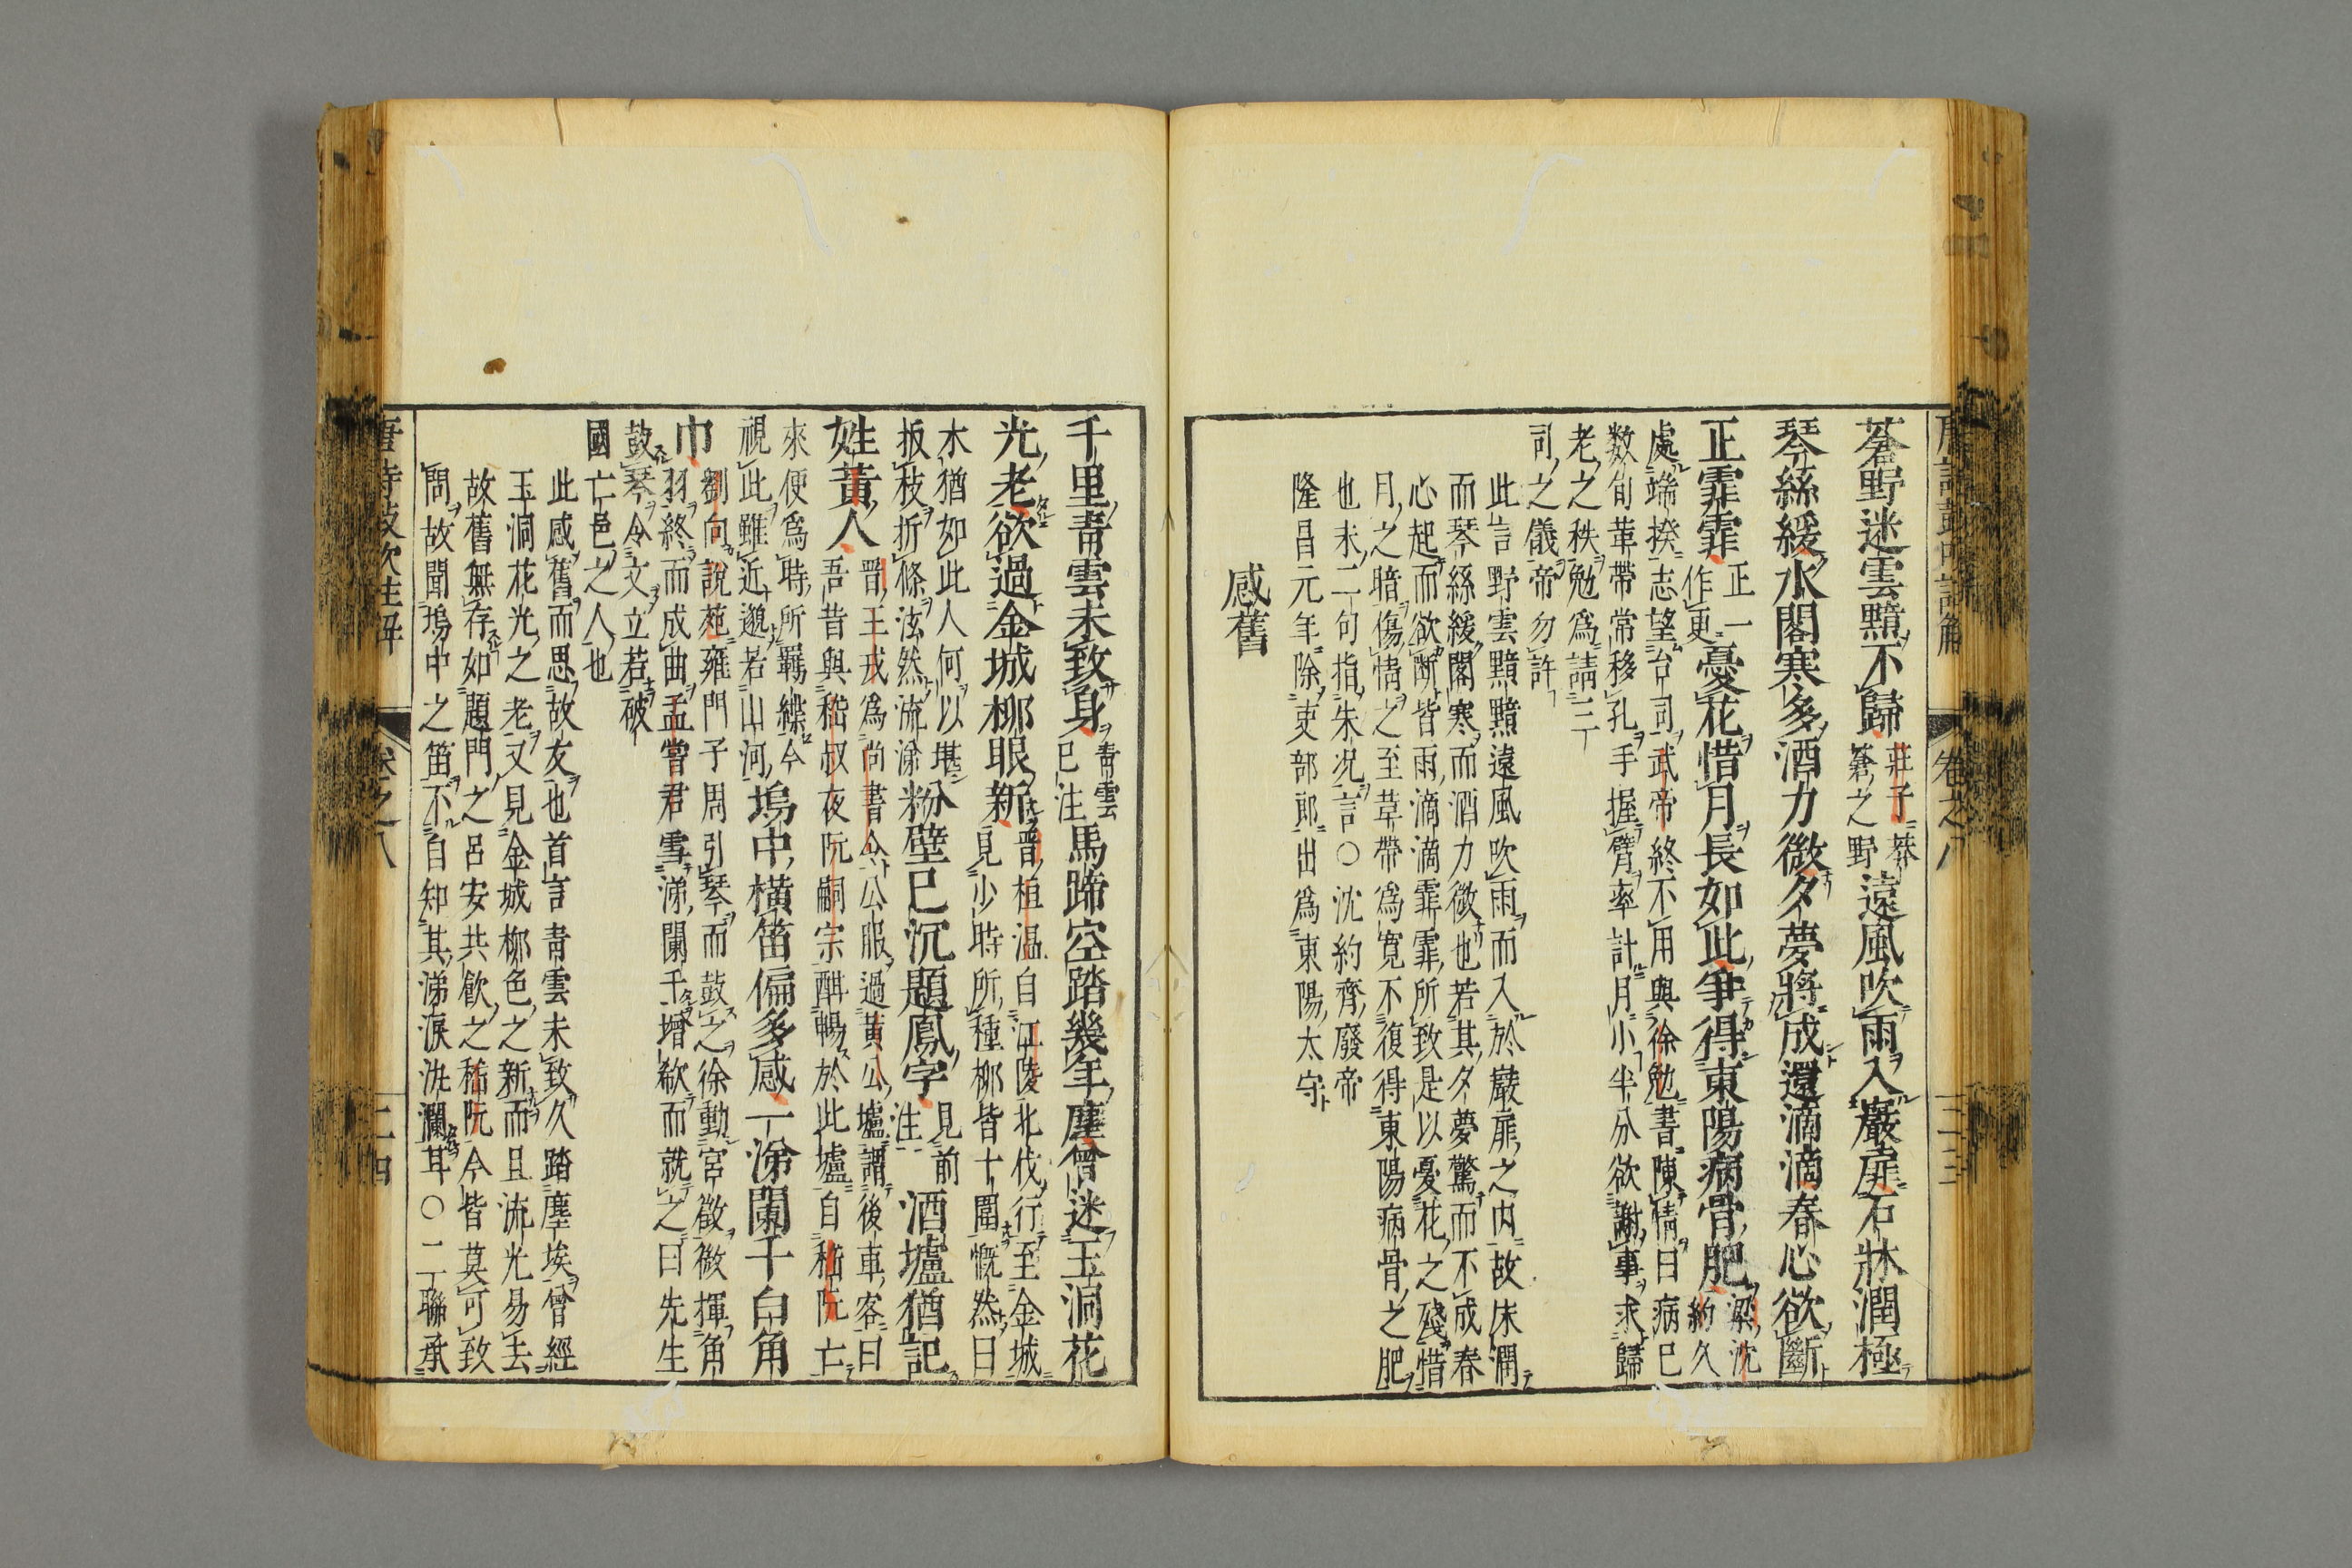 蒼野迷雲黯不歸莊子莽蒼之野遠風吹雨入巖扉石牀潤極
琴絲緩水閣寒多酒力微夕夢將成還滴滴春心欲斷
正霏霏正一作更憂花惜月長如此爭得東陽病骨肥梁沈約久
處端揆志望台司武帝終不用與徐勉書陳情曰病已
数旬革帶常移孔手握臂率計月小半分欲謝事求歸
老之秩勉爲請三
司之儀帝勿許
此言野雲黯黯遠風吹雨而入於巖扉之内故床潤
而琴絲緩閣寒而酒力微也若其夕夢驚而不成春
心起而欲断皆雨滴滴霏霏所致是以憂花之殘惜
月之暗傷情之至草帶爲寛不復得東陽病骨之肥
也末二句指朱况言○沈約齊廢帝
隆昌元年除吏部郎出爲東陽太守
感舊
卷之八
三三
千里青雲未致身青雲已注馬蹄空踏幾年塵曾迷玉洞花
光老欲過金城柳眼新晉桓温自江陵北伐行至金城見少時所種柳皆十圍慨然曰
木猶如此人何以堪扳枝折條泫然流涕粉壁已沉題鳳字見前注酒壚猶記
姓黃人晉王戎爲尚書令公服過黃公壚謂後車客曰吾昔與嵇叔夜阮嗣宗酣暢於此壚自嵇阮亡
來便爲時所羈紲今視此雖近邈若山河塢中橫笛偏多感一涕闌干白角
巾劉向說苑雍門子周引琴而鼓之徐動宮徵微揮角羽終而成曲孟嘗君雪涕闌干增欷而就之曰先生
鼓琴令文立若破
國亡邑之人也
此感舊而思故友也首言青雲未致久踏塵埃曾經
玉洞花光之老又見金城柳色之新而且流光易去
故舊無存如題門之呂安共飲之嵇阮今皆莫可致
問故聞塢中之笛不自知其涕淚汍瀾耳○二聯承
唐詩鼓吹註解
卷之八
三四